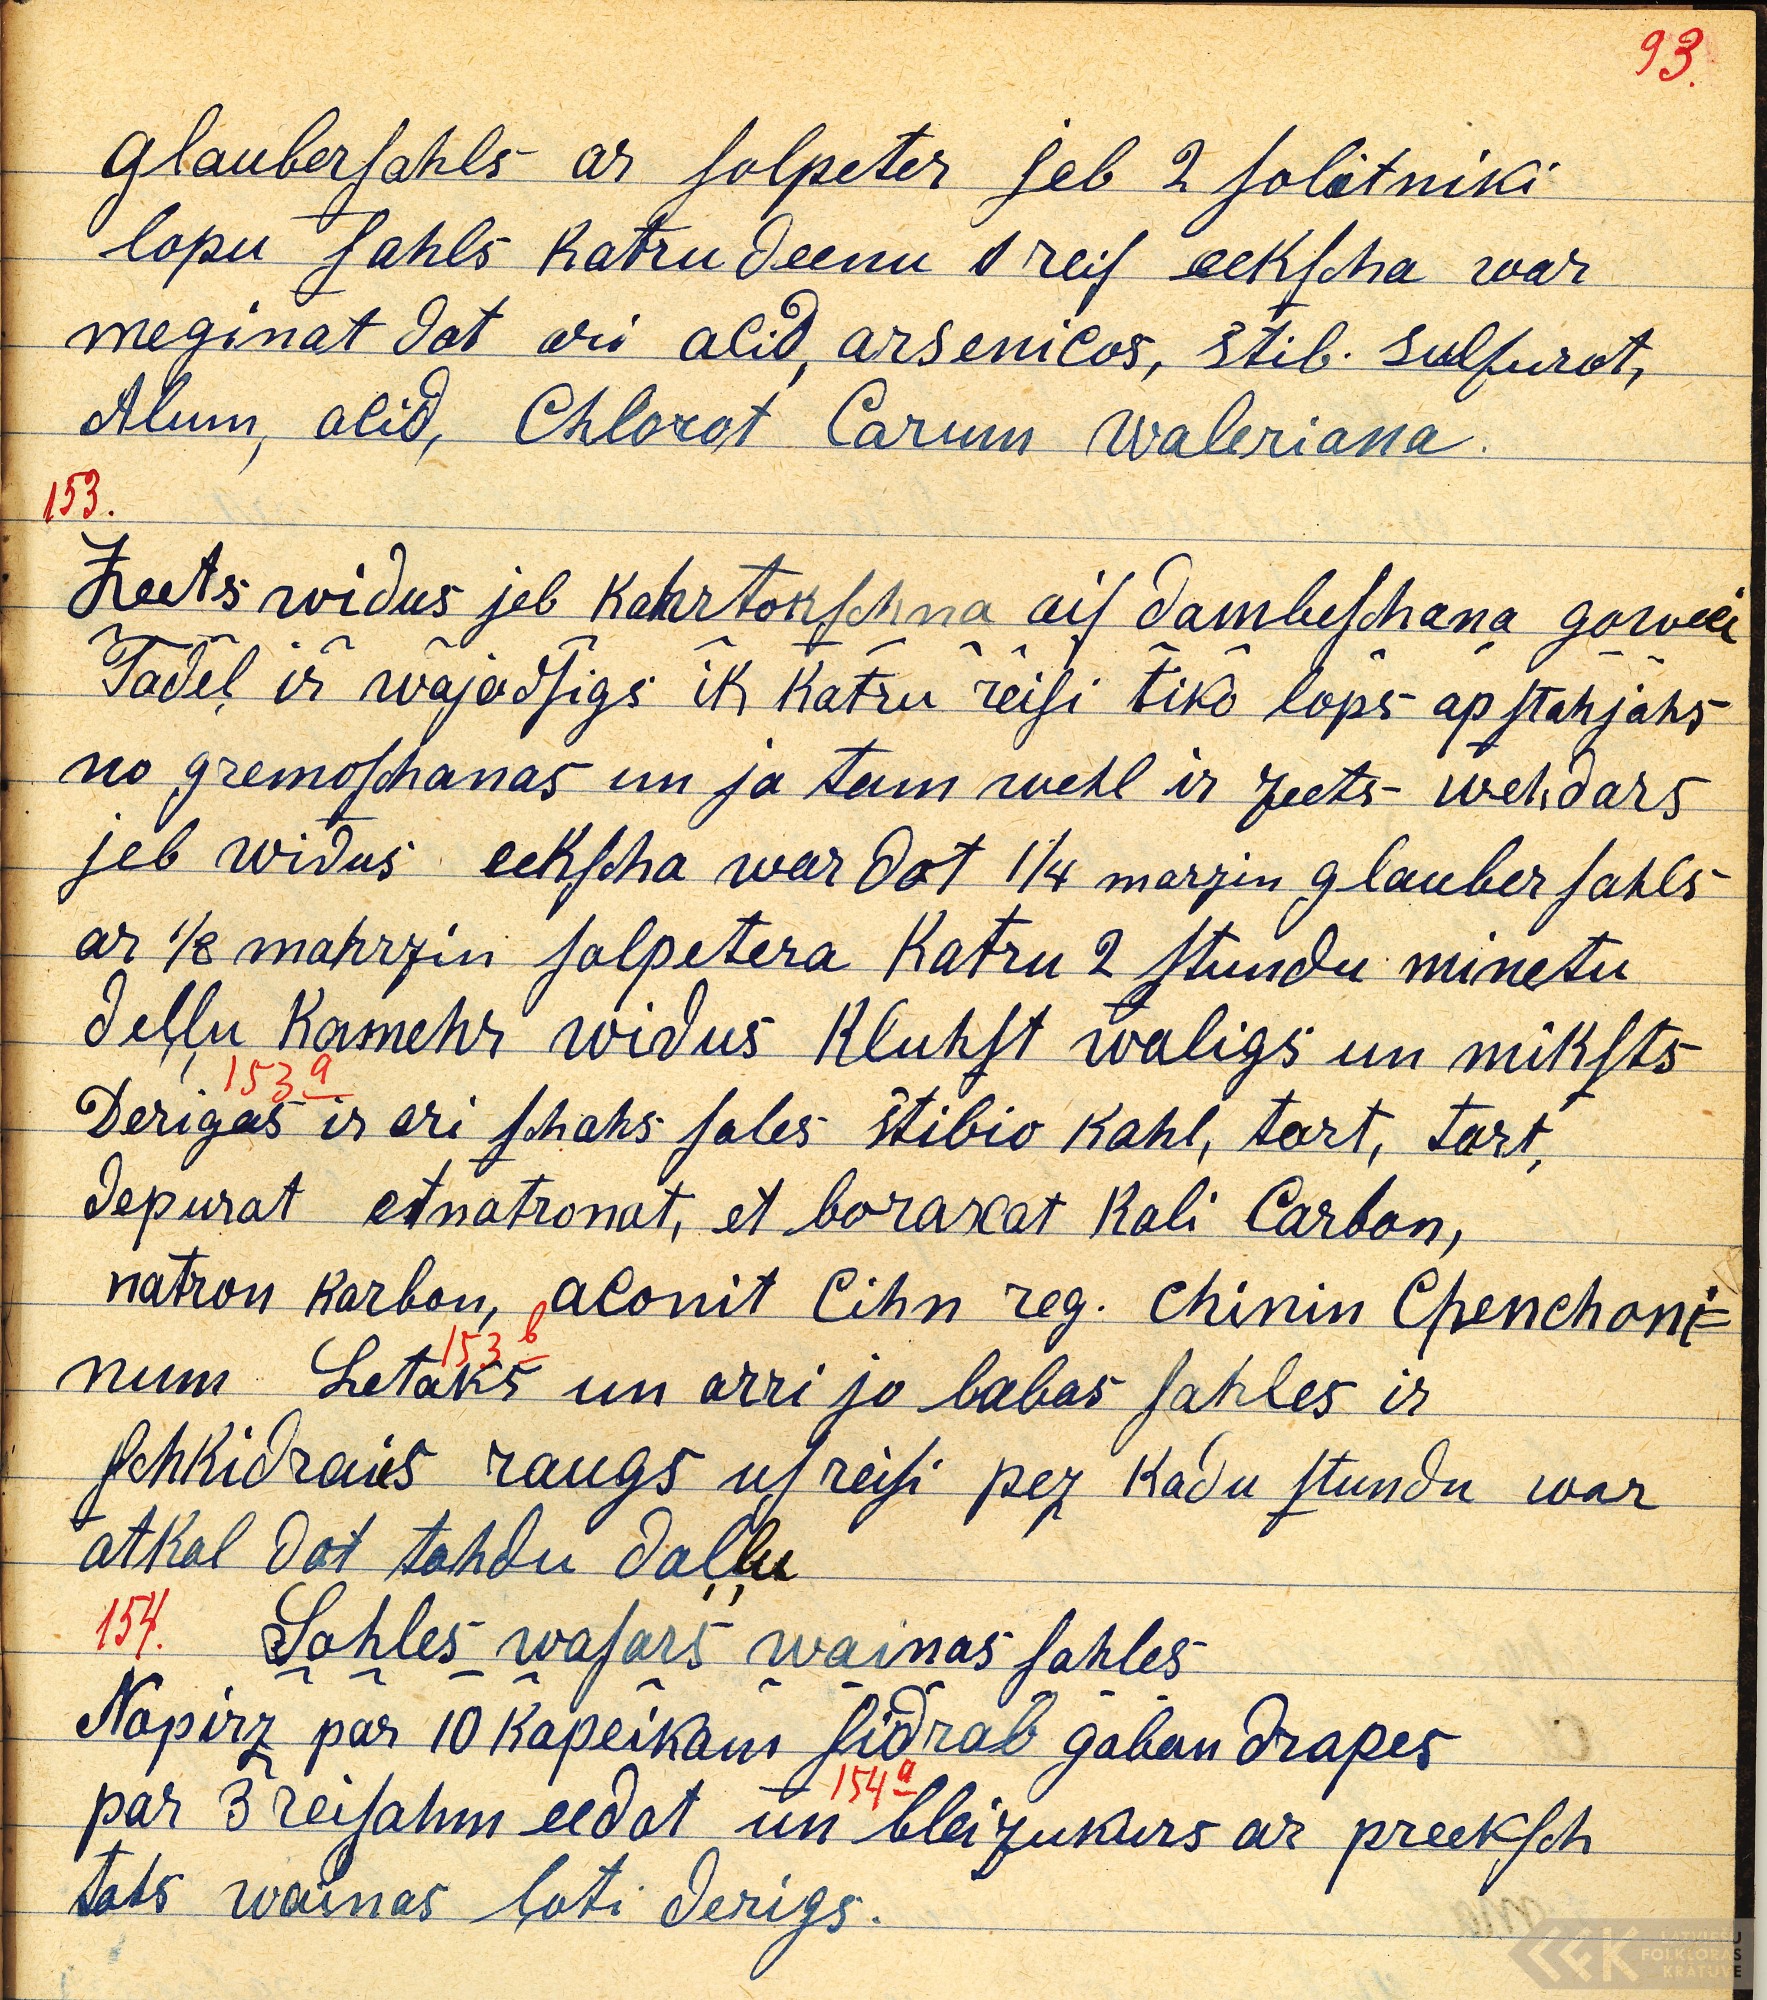 93.
glauberſahls ar ſalpeter jeb 2 ſolotniki
lopu ſahls katru deenu 1 reiſ eekſcha war
meginat dot ari acid, arsenicos, stib. sulfurat,
Alum, acid, Chlorat Carum waleriana.
153.
Zeets widus jeb kahrtokſchna aiſ dambeſchana gowei
Tadeļ ir wajadſigs ik katru reiſi tiko lops apſtahjahs
no gremoſchanas un ja tam wehl ir zeets wehdars
jeb widus eekſcha war dot 1/4 marzin glauber ſahls
ar 1/8 mahrzin ſalpetera katru 2 ſtundu minetu
deļļu kamehr widus kluhſt waligs un mikſts
153 a
Derigas ir ari ſchahs ſales stibio kahl, tart, tart,
depurat etnatronat, et boraxat kali Carbon,
natron karbon, aconit Cihn reg. chinin Chenchoni=
153 b
num Letaks un arri jo labas ſahles ir
ſchkidrais raugs uſ reiſi pez kadu ſtundu war
atkal dot tahdu daļļu
154. Sahles waſars wainas ſahles
Nopirz par 10 kapeikam ſidrab gaban drapes
154 a
par 3 reiſahm eedot un bleizukurs ar preekſch
tahs wainas ļoti derigs.
LATVIEŠU
FOLKLORAS
KRĀTUVE